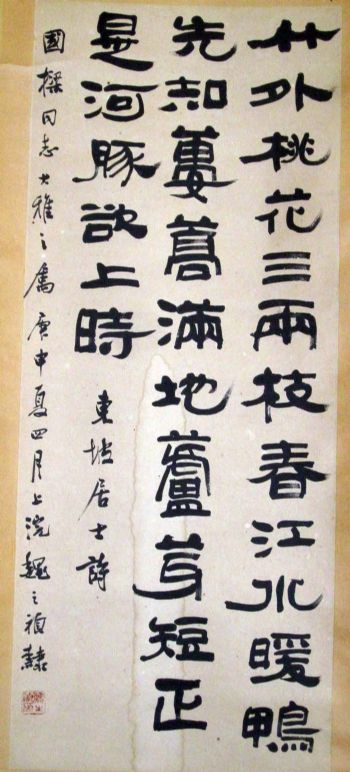 竹外桃花三兩枝春江水暖鴨
先知蔞蒿滿地蘆芽短正
是河豚欲上時
東坡居士詩
國樑同志大雅之屬庚申夏四月上浣魏之禎隸